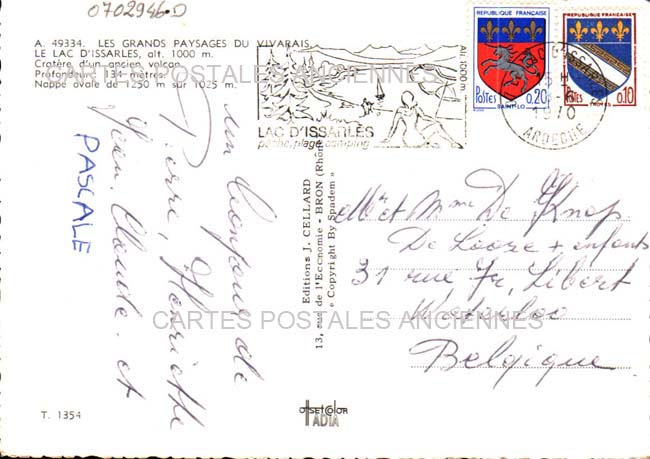 0702946D
A. 49334. LES GRANDS PAYSAGES DU VIVARAIS
LE LAC D'ISSARLES, alt. 1000 m.
Cratère d'un ancien volcan
Profondeur 134 mètres.
Nappe ovale de 1250 m sur 1025 m.
CARTES POSTALES ANCIENNES
LAC D'ISSARLÈS
pêche, plage, camping
Alt. 1000 m
REPUBLIQUE FRANÇAISE
Postes 0,20
SAINT-LO
REPUBLIQUE FRANÇAISE
Postes 0,10
TROYES
1970
ARDECHE
un bonjour de
Pierre, Henriette
Jean Claude et
PASCALE
Editions J. CELLARD
13, rue de l'Economie - BRON (Rhône)
« Copyright By Spadem »
Mr et Mme De Knop
De Looze + enfants
31 rue Fr. Libert
Waterloo
Belgique
CARTES POSTALES ANCIENNES
T. 1354
OFFSET COLOR
IADIA